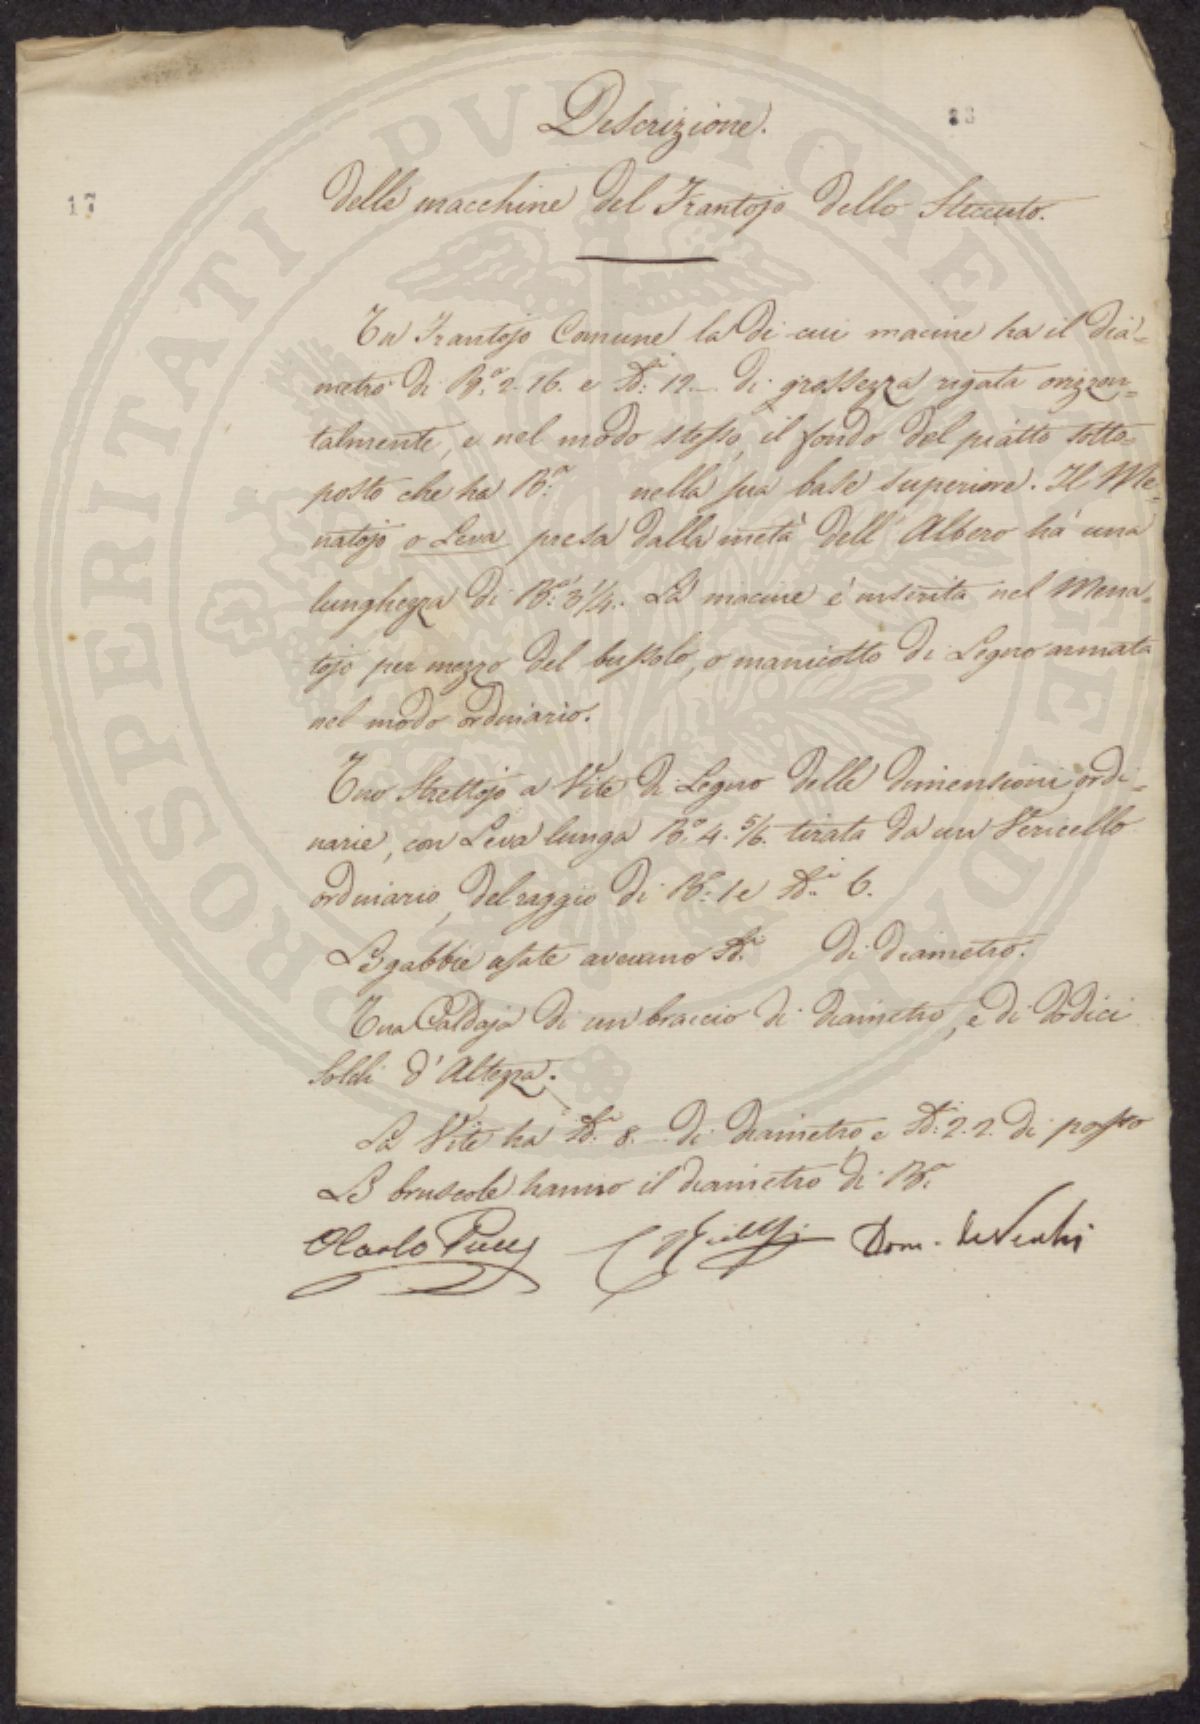 Descrizione.
33
17
delle macchine del Frantojo dello Steccuto.
Un Frantojo Comune la di cui macine ha il dia=
metro di B.ª 2. 16. e S.di 12.— di grossezza rigata orizzon=
talmente, e nel modo stesso, il fondo del piatto sotto=
posto che ha B.ª nella sua base superiore. Il Me=
natojo o Leva presa dalla metà dell' Albero hà una
lunghezza di B.ª 3 1/4. La macine è inserita nel Mena=
tojo per mezzo del bussolo, o manicotto di Legno armata
nel modo ordinario.
Uno Strettojo a Vite di Legno delle dimensioni ordi=
narie, con Leva lunga B.ª 4. 5/6. tirata da un Vericello
ordinario, del raggio di B.ª 1 e S.di 6.
Le gabbie usate avevano S.di di diametro.
Una Caldaja di un braccio di diametro, e di dodici
Soldi d'Altezza.
La Vite ha S.di 8.— di diametro, e S.di 2. 2. di passo
Le bruscole hanno il diametro di B.ª
Carlo Pucci Dom. de Vecchi
PROSPERITATI PVBLICAE AVGENDAE